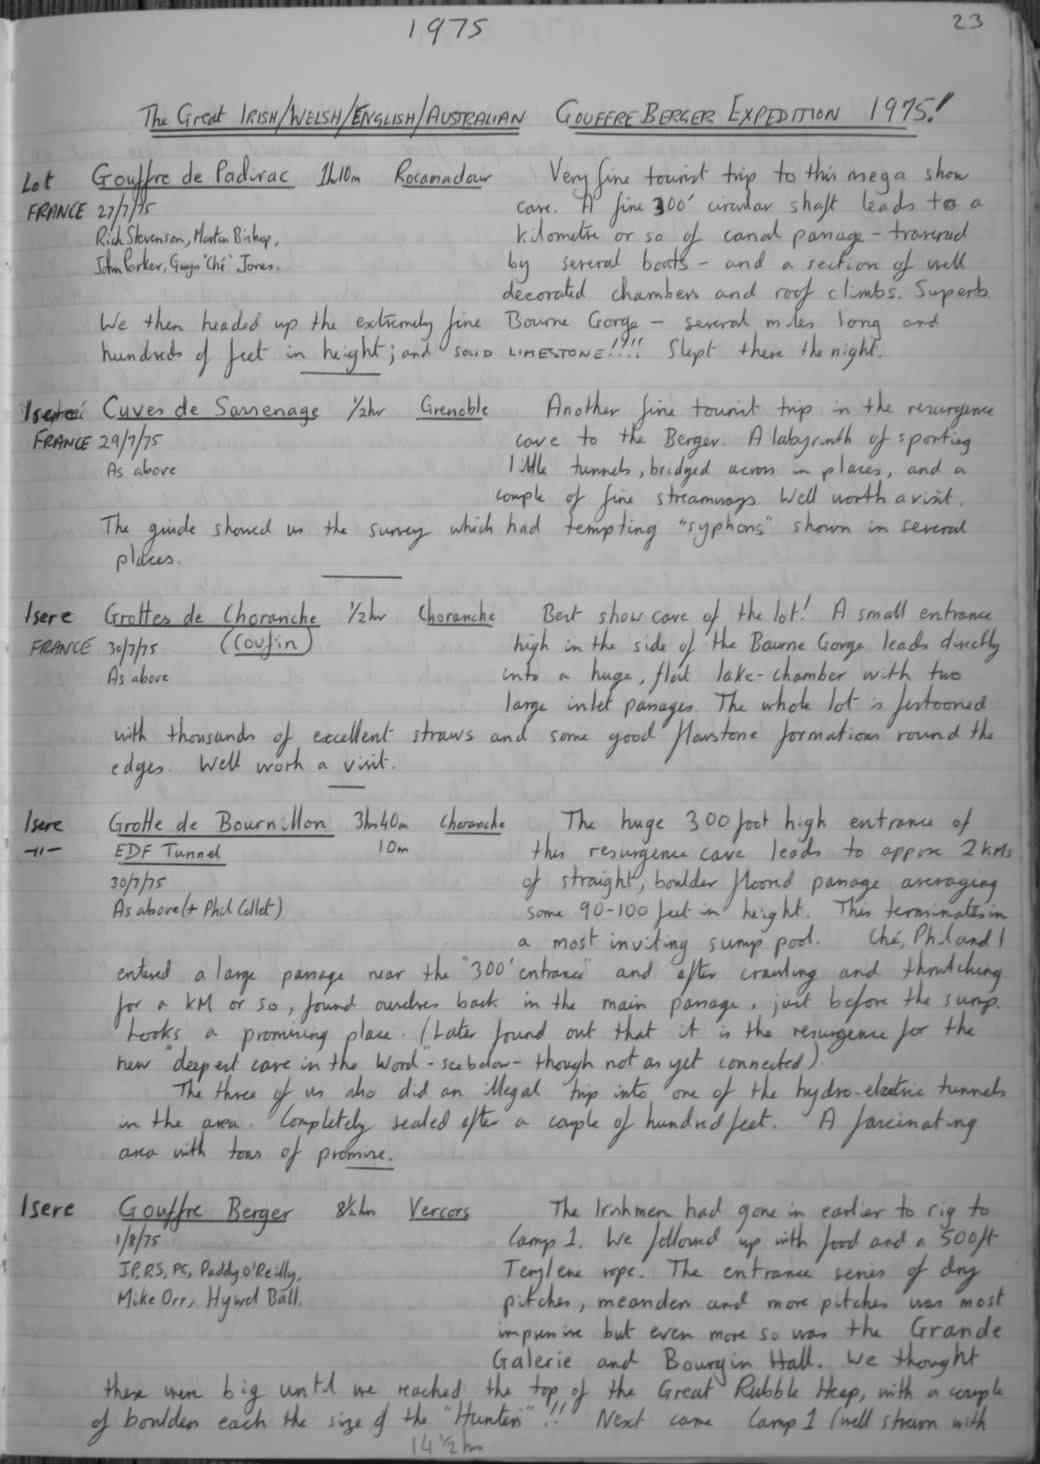 1975
23
The Great IRISH/WELSH/ENGLISH/AUSTRALIAN GOUFFRE BERGER EXPEDITION 1975!
Lot Gouffre de Padirac 1h10m Rocamadour Very fine tourist trip to this mega show
FRANCE 27/7/75 cave. A fine 300' circular shaft leads to a
Rich Stevenson, Martin Bishop, kilometre or so of canal passage - traversed
John Parker, Gwyn 'Ché' Jones. by several boats - and a section of well
decorated chambers and roof climbs. Superb.
We then headed up the extremely fine Bourne Gorge - several miles long and
hundreds of feet in height; and SOLID LIMESTONE!!!! Slept there the night.
Isere Cuves de Sassenage 1/2hr Grenoble Another fine tourist trip in the resurgence
FRANCE 29/7/75 cave to the Berger. A labyrinth of sporting
As above little tunnels, bridged across in places, and a
couple of fine streamways. Well worth a visit.
The guide showed us the survey which had tempting "syphons" shown in several
places.
Isere Grottes de Choranche 1/2hr Choranche Best show cave of the lot! A small entrance
FRANCE 30/7/75 (Coufin) high in the side of the Bourne Gorge leads directly
As above into a huge, flat lake-chamber with two
large inlet passages. The whole lot is festooned
with thousands of excellent straws and some good flowstone formations round the
edges. Well worth a visit.
Isere Grotte de Bournillon 3hr40m Choranche The huge 300 foot high entrance of
-"- EDF Tunnel 10m this resurgence cave leads to approx 2 kms
30/7/75 of straight, boulder floored passage averaging
As above (+ Phil Collet) some 90-100 feet in height. This terminates in
a most inviting sump pool. Ché, Phil and I
entered a large passage near the "300' entrance" and after crawling and thrutching
for a KM or so, found ourselves back in the main passage, just before the sump.
Looks a promising place. (Later found out that it is the resurgence for the
new "deepest cave in the Word" - see below - though not as yet connected).
The three of us also did an illegal trip into one of the hydro-electric tunnels
in the area. Completely sealed after a couple of hundred feet. A fascinating
area with tons of promise.
Isere Gouffre Berger 8½hr Vercors The Irishmen had gone in earlier to rig to
1/8/75 Camp 1. We followed up with food and a 500ft
JP, RS, PC, Paddy O'Reilly, Terylene rope. The entrance series of dry
Mike Orr, Hywel Ball. pitches, meanders and more pitches was most
impressive but even more so was the Grande
Galerie and Bourgin Hall. We thought
these were big until we reached the top of the Great Rubble Heap, with a couple
of boulders each the size of the "Hunters"!! Next came Camp 1 (well strewn with
14½hrs